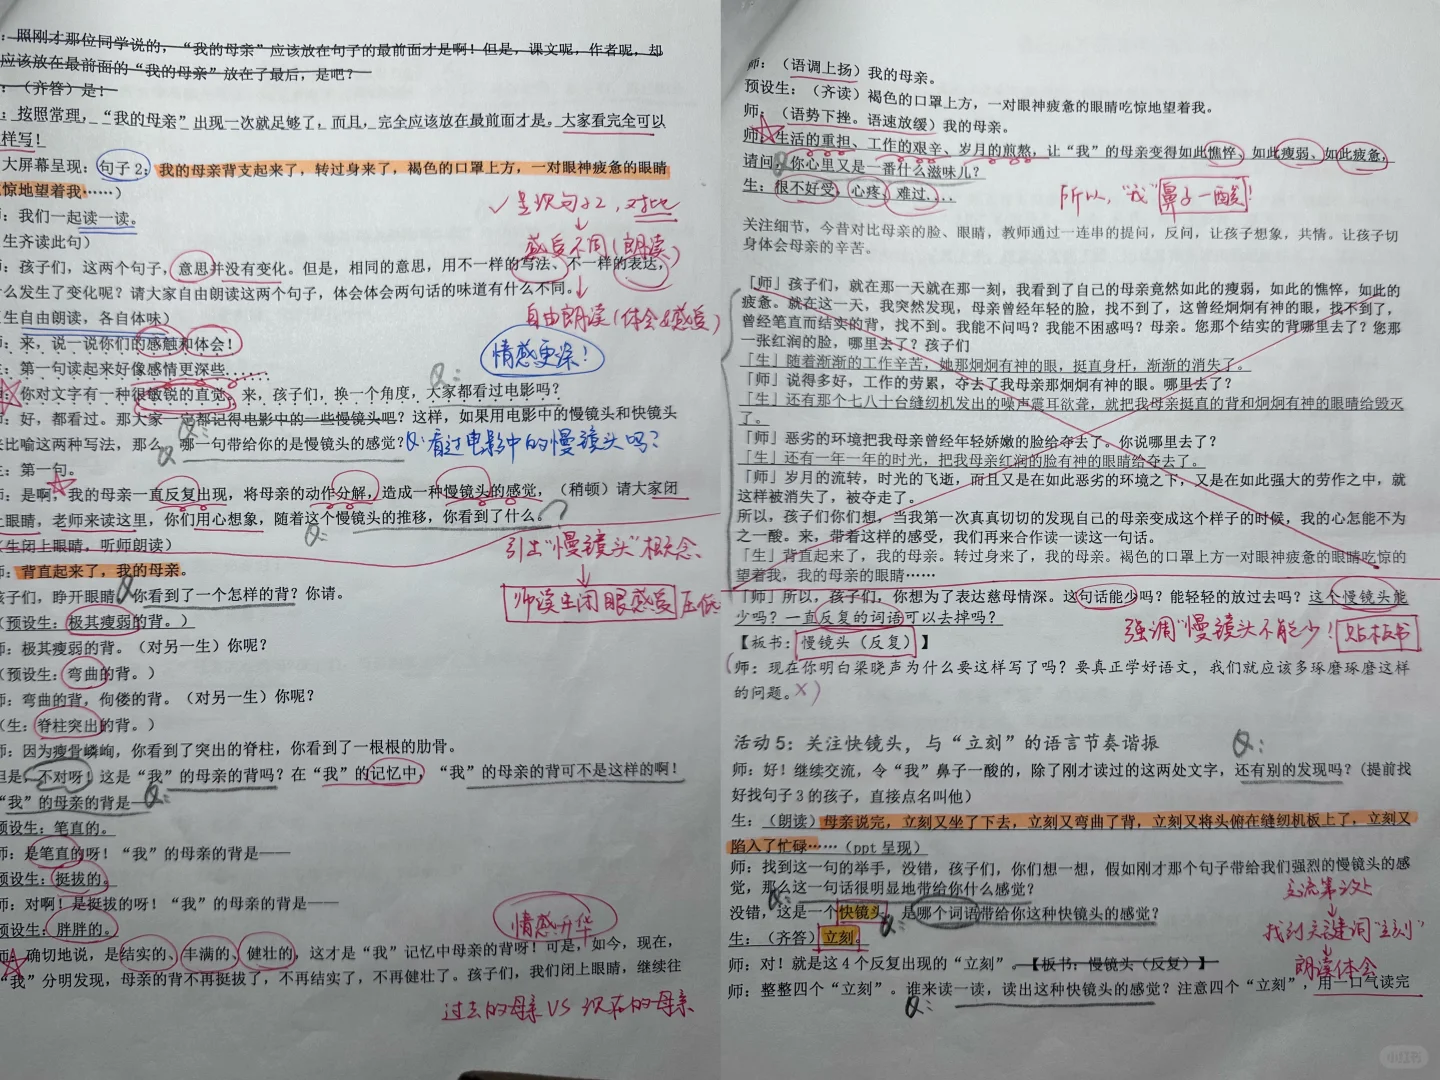 ：照刚才那位同学说的，“我的母亲”应该放在句子的最前面才是啊！但是，课文呢，作者呢，却
应该放在最前面的“我的母亲”放在了最后，是吧？
：（齐答）是！
：按照常理，“我的母亲”出现一次就足够了，而且，完全应该放在最前面才是。大家看完全可以
样写！
大屏幕呈现：句子2：我的母亲背支起来了，转过身来了，褐色的口罩上方，一对眼神疲惫的眼睛
惊地望着我……）
：我们一起读一读。
生齐读此句）
✓呈现句子2，对比
↓
感受不同(朗读)
：孩子们，这两个句子，意思并没有变化。但是，相同的意思，用不一样的写法、不一样的表达，
什么发生了变化呢？请大家自由朗读这两个句子，体会体会两句话的味道有什么不同。
↓
自由朗读(体会&感受)
生自由朗读，各自体味）
：来，说一说你们的感触和体会！
情感更深！
：第一句读起来好像感情更深些……
Q：
：你对文字有一种很敏锐的直觉。来，孩子们，换一个角度，大家都看过电影吗？
：好，都看过。那大家一定都记得电影中的一些慢镜头吧？这样，如果用电影中的慢镜头和快镜头
来比喻这两种写法，那么，哪一句带给你的是慢镜头的感觉？
Q：看过电影中的慢镜头吗？
：第一句。
：是啊，我的母亲一直反复出现，将母亲的动作分解，造成一种慢镜头的感觉，（稍顿）请大家闭
上眼睛，老师来读这里，你们用心想象，随着这个慢镜头的推移，你看到了什么。
Q：
（生闭上眼睛，听师朗读）
引出“慢镜头”概念、
↓
师读生闭眼感受 压低
师：背直起来了，我的母亲。
孩子们，睁开眼睛，你看到了一个怎样的背？你请。
（预设生：极其瘦弱的背。）
师：极其瘦弱的背。（对另一生）你呢？
（预设生：弯曲的背。）
师：弯曲的背，佝偻的背。（对另一生）你呢？
（生：脊柱突出的背。）
师：因为瘦骨嶙峋，你看到了突出的脊柱，你看到了一根根的肋骨。
但是，不对呀！这是“我”的母亲的背吗？在“我”的记忆中，“我”的母亲的背可不是这样的啊！
“我”的母亲的背是——
Q：
预设生：笔直的。
师：是笔直的呀！“我”的母亲的背是——
预设生：挺拔的。
师：对啊！是挺拔的呀！“我”的母亲的背是——
预设生：胖胖的。
情感升华
师：确切地说，是结实的、丰满的、健壮的，这才是“我”记忆中母亲的背呀！可是，如今，现在，
“我”分明发现，母亲的背不再挺拔了，不再结实了，不再健壮了。孩子们，我们闭上眼睛，继续往
过去的母亲 VS 现在的母亲
师：（语调上扬）我的母亲。
预设生：（齐读）褐色的口罩上方，一对眼神疲惫的眼睛吃惊地望着我。
师：（语势下挫。语速放缓）我的母亲。
师：生活的重担、工作的艰辛、岁月的煎熬，让“我”的母亲变得如此憔悴、如此瘦弱、如此疲惫，
请问，你心里又是一番什么滋味儿？
生：很不好受，心疼，难过....
所以，“我”鼻子一酸！
关注细节，今昔对比母亲的脸、眼睛，教师通过一连串的提问，反问，让孩子想象，共情。让孩子切
身体会母亲的辛苦。
「师」孩子们，就在那一天就在那一刻，我看到了自己的母亲竟然如此的瘦弱，如此的憔悴，如此的
疲惫。就在这一天，我突然发现，母亲曾经年轻的脸，找不到了，这曾经炯炯有神的眼，找不到了，
曾经笔直而结实的背，找不到。我能不问吗？我能不困惑吗？母亲。您那个结实的背哪里去了？您那
一张红润的脸，哪里去了？孩子们
「生」随着渐渐的工作辛苦，她那炯炯有神的眼，挺直身杆，渐渐的消失了。
「师」说得多好，工作的劳累，夺去了我母亲那炯炯有神的眼。哪里去了？
「生」还有那个七八十台缝纫机发出的噪声震耳欲聋，就把我母亲挺直的背和炯炯有神的眼睛给毁灭
了。
「师」恶劣的环境把我母亲曾经年轻娇嫩的脸给夺去了。你说哪里去了？
「生」还有一年一年的时光，把我母亲红润的脸有神的眼睛给夺去了。
「师」岁月的流转，时光的飞逝，而且又是在如此恶劣的环境之下，又是在如此强大的劳作之中，就
这样被消失了，被夺走了。
所以，孩子们你们想，当我第一次真真切切的发现自己的母亲变成这个样子的时候，我的心怎能不为
之一酸。来，带着这样的感受，我们再来合作读一读这一句话。
「生」背直起来了，我的母亲。转过身来了，我的母亲。褐色的口罩上方一对眼神疲惫的眼睛吃惊的
望着我，我的母亲的眼睛……
「师」所以，孩子们，你想为了表达慈母情深。这句话能少吗？能轻轻的放过去吗？这个慢镜头能
少吗？一直反复的词语可以去掉吗？
强调“慢镜头不能少！贴板书
【板书：慢镜头（反复）】
（师：现在你明白梁晓声为什么要这样写了吗？要真正学好语文，我们就应该多琢磨琢磨这样
的问题。×）
活动5：关注快镜头，与“立刻”的语言节奏谐振
Q：
师：好！继续交流，令“我”鼻子一酸的，除了刚才读过的这两处文字，还有别的发现吗？（提前找
好找句子3的孩子，直接点名叫他）
生：（朗读）母亲说完，立刻又坐了下去，立刻又弯曲了背，立刻又将头俯在缝纫机板上了，立刻又
陷入了忙碌……（ppt 呈现）
师：找到这一句的举手，没错，孩子们，你们想一想，假如刚才那个句子带给我们强烈的慢镜头的感
觉，那么这一句话很明显地带给你什么感觉？
Q：
没错，这是一个快镜头，是哪个词语带给你这种快镜头的感觉？
交流第3处
↓
找到关键词“立刻”
↓
朗读体会
生：（齐答）立刻。
师：对！就是这4个反复出现的“立刻”。【板书：慢镜头（反复）】
师：整整四个“立刻”。谁来读一读，读出这种快镜头的感觉？注意四个“立刻”，用一口气读完
Q：
小红书